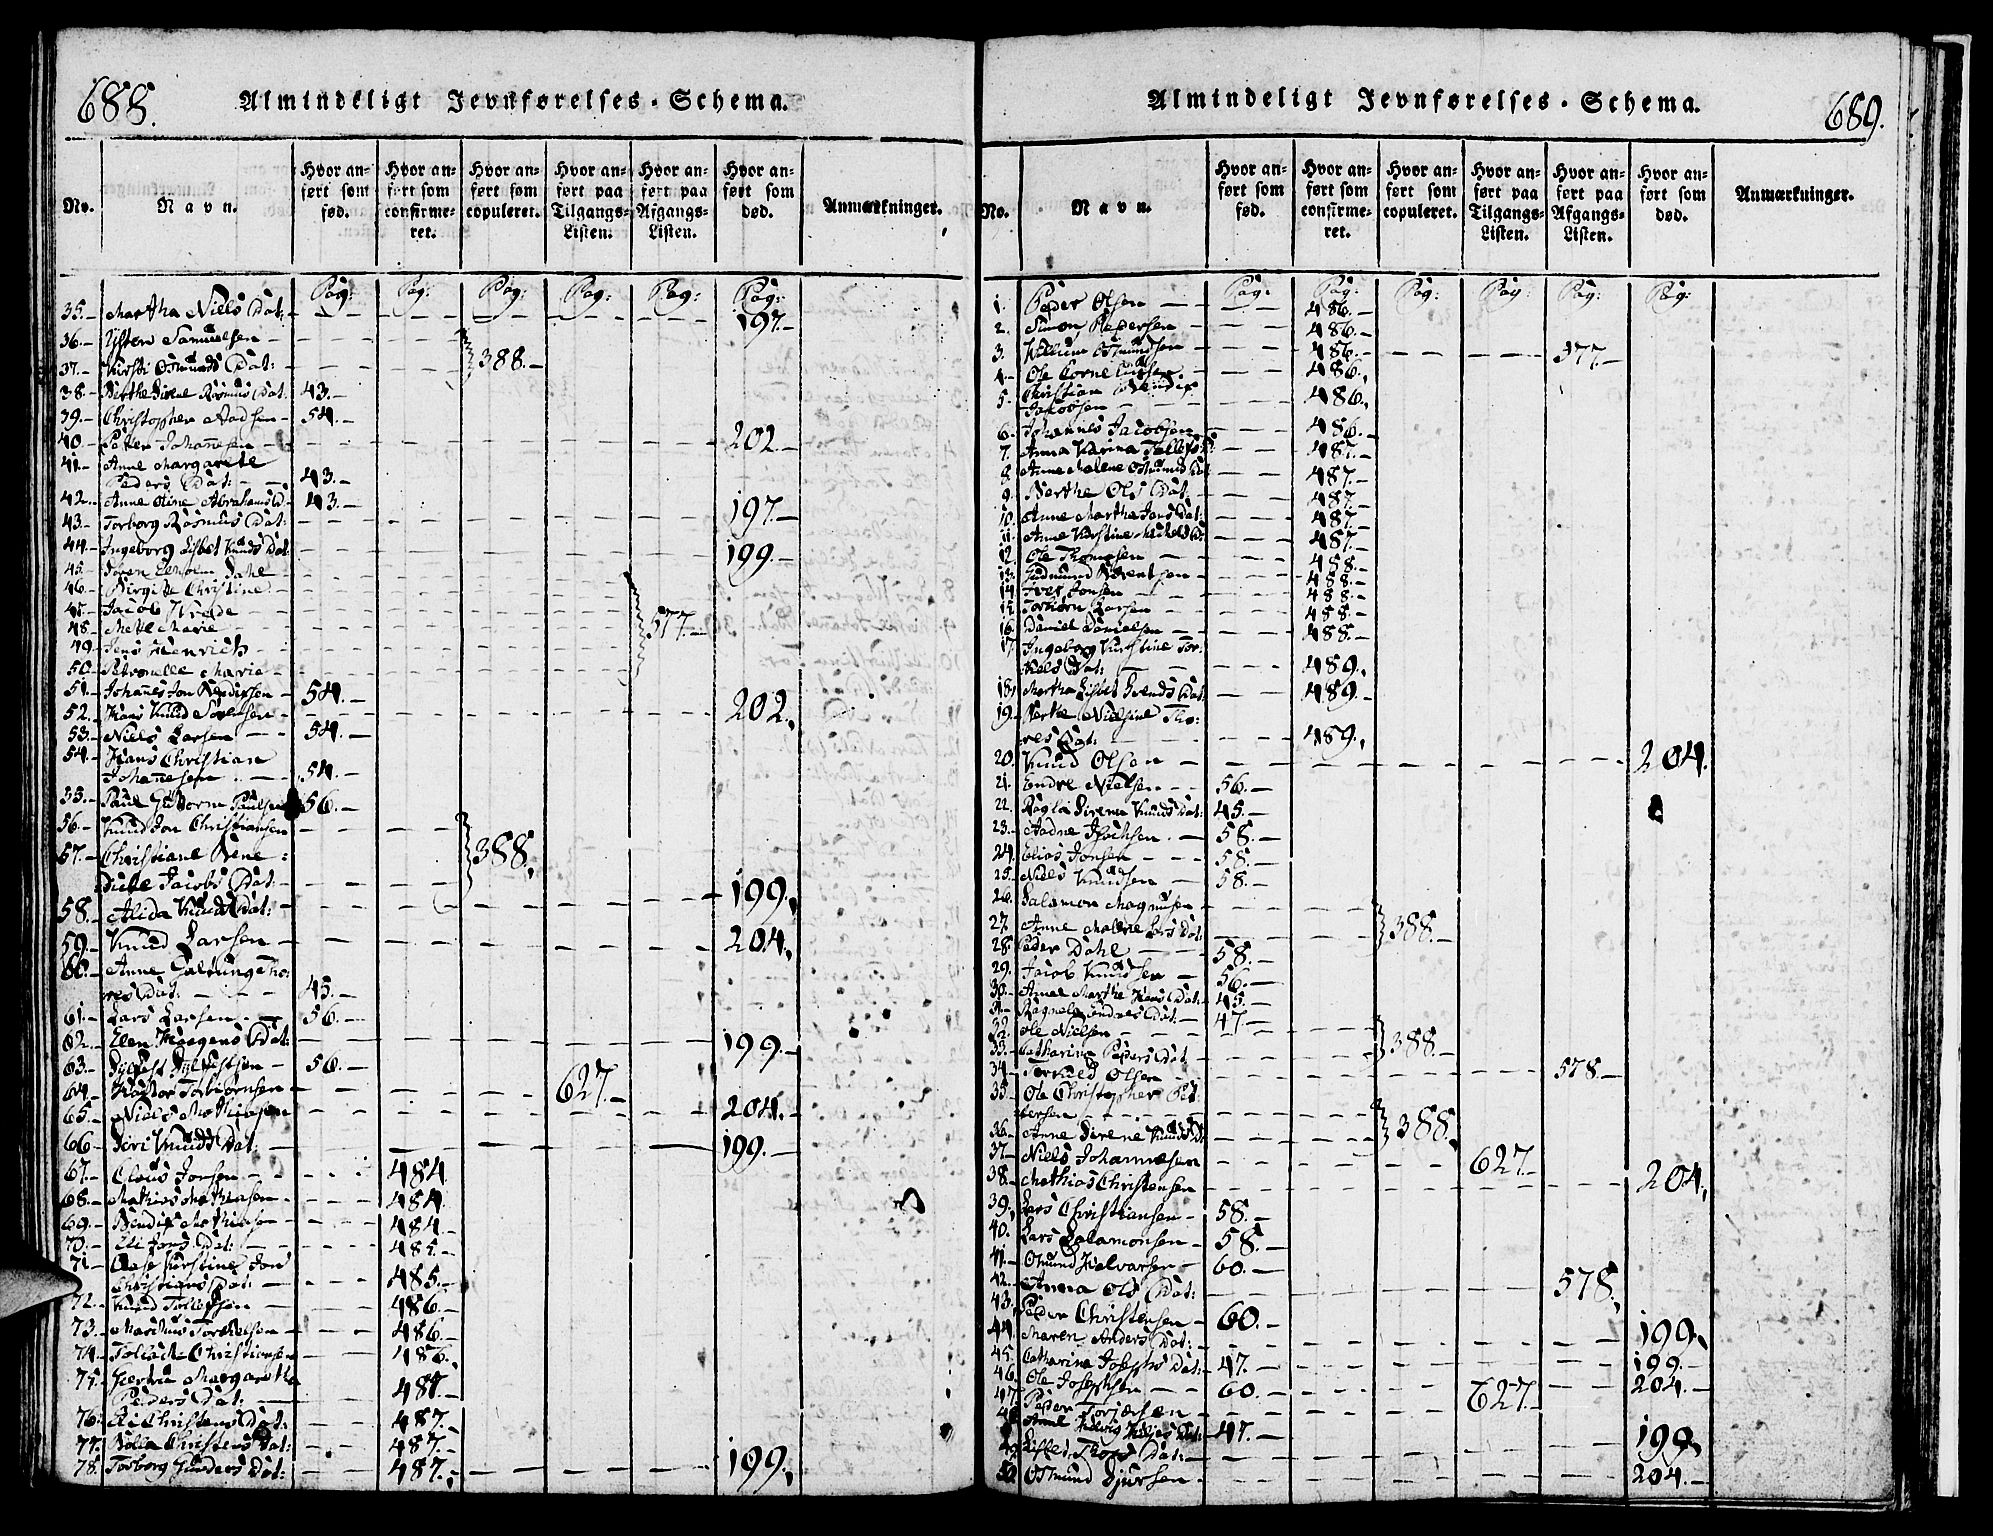 688.
Almindeligt Jevnførelses-Schema.
No.
Navn.
Hvor anført som fød.
Hvor anført som confirmeret.
Hvor anført som copuleret.
Hvor anført paa Tilgangs-Listen.
Hvor anført paa Afgangs-Listen.
Hvor anført som død.
Anmærkninger.
Pag: Pag: Pag: Pag: Pag: Pag:
35. Martha Niels Dat: 197.
36. Samuelsen
37. Kirsti Osmunds Dat: 388.
38. Berthe Sirene Rasmus Dat: 43.
39. Christopher Aadsen 54.
40. Peter Johanesen 202.
41. Anne Margarete
Peders Dat: 43.
42. Anne Oline Abrahams D. 43.
43. Torborg Rasmus Dat: 197.
44. Ingeborg Lisbet Knuds Dat: 199.
45. Søren Dahl
46. Birgitte Christine
47. Jacob
48. Mette Marie 577.
49. Jens Henrich
50. Petronelle Marie
51. Johanes Jon 54.
52. Hans Knud Sørensen 202.
53. Niels Larsen 54.
54. Hans Christian
Johanesen 54.
55. Paul Guttorm Paulsen 56.
56. Knud Jon Christiansen
57. Christiane Bene: 388.
dicte Jacobs Dat: 199.
58. Alida Knuds Dat:
59. Knud Larsen 204.
60. Anne Galtung Tho:
res Dat: 45.
61. Lars Larsen 56.
62. Elen Haagens Dat: 199.
63. 56.
64. Torbiørnsen 627.
65. Niels Mathiasen 204.
66. Siri Knuds Dat: 199.
67. Claus Jonsen 484
68. Mathias Mathiasen 484.
69. Bendix Mathiasen 484.
70. Eli Jons Dat: 485.
71. Aase Kirstine Jon
Christians Dat: 485.
72. Knud Tollefsen 486.
73. Torkelsen 486.
74. Christiansen 486.
75. Margaretha
Peders Dat: 487.
76. Christens Dat: 487.
77. Christens Dat: 487.
78. Torborg Gunders Dat: 487. 199.
Almindeligt Jevnførelses-Schema.
689.
No.
Navn.
Hvor anført som fød.
Hvor anført som confirmeret.
Hvor anført som copuleret.
Hvor anført paa Tilgangs-Listen.
Hvor anført paa Afgangs-Listen.
Hvor anført som død.
Anmærkninger.
Pag: Pag: Pag: Pag: Pag: Pag:
1. Peder Olsen 486.
2. Simon Pedersen 486.
3. Willum Osmundsen 486. 577.
4. Ole Corneliusen 486.
5. Christian Bendix
Jakobsen 486.
6. Johannes Jacobsen 486.
7. Anna Karina 487.
8. Anne Malene Osmunds Dat 487.
9. Berthe Ols Dat: 487.
10. Anne Martha Jans Dat: 487.
11. Anne Kirstine 487.
12. Ole Thomasen 488.
13. Gudmund 488.
14. Iver Jonsen 488.
15. Torbiørn Larsen 488.
16. Daniel Danielsen 488.
17. Ingeborg Kirstine Tor:
kels Dat: 489.
18. Martha Lisbet Svends Dat: 489.
19. Berthe Nielsine Tho:
res Dat: 489.
20. Knud Olsen 204.
21. Endre Nielsen 56.
22. Ragla Sirena Knuds Dat: 45.
23. Aadne 58.
24. Elias Jonsen 58.
25. Niels Knudsen 58.
26. Salamon Magnusen
27. Anne Malene Lars Dat: 388.
28. Peder Dahl 58.
29. Jacob Knudsen 56.
30. Anne Marthe Hans Dat: 45.
31. Ragnele Endres Dat: 47.
32. Ole Nielsen
33. Catharina Peders Dat: 388.
34. Torkild Olsen 578.
35. Ole Christopher Pet:
tersen
36. Anne Sirene Knuds Dt 388.
37. Niels Johannesen 627.
38. Mathias Christensen 204.
39. Lars Christiansen 58.
40. Lars Salamonsen 58.
41. Osmund Halvarsen 60.
42. Anna Ols Dat: 578.
43. Peder Christensen 60.
44. Maren Anders Dat: 199.
45. Catharina Josephs Dat: 47. 199.
46. Ole Josephsen 60. 204.
47. Peder 627.
48. Anne 47.
49. Lisbet Thors Dat: 199.
50. Osmund Sjursen 204.